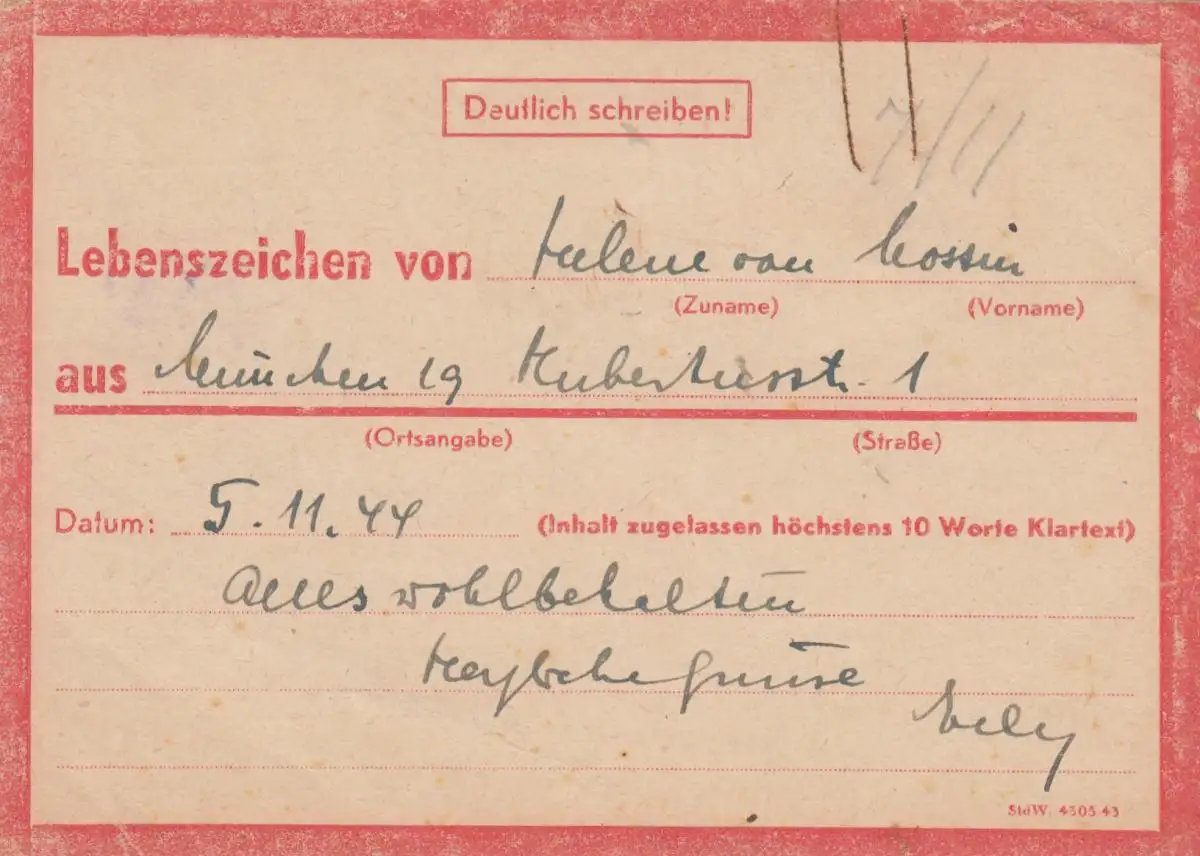 7/11
Deutlich schreiben!
Lebenszeichen von Helene von Mossin
(Zuname) (Vorname)
aus München 19 Hubertusstr. 1
(Ortsangabe) (Straße)
Datum: 5.11.44 (Inhalt zugelassen höchstens 10 Worte Klartext)
Alles wohlbehalten
Herzliche Grüsse
StdW. 4305 43